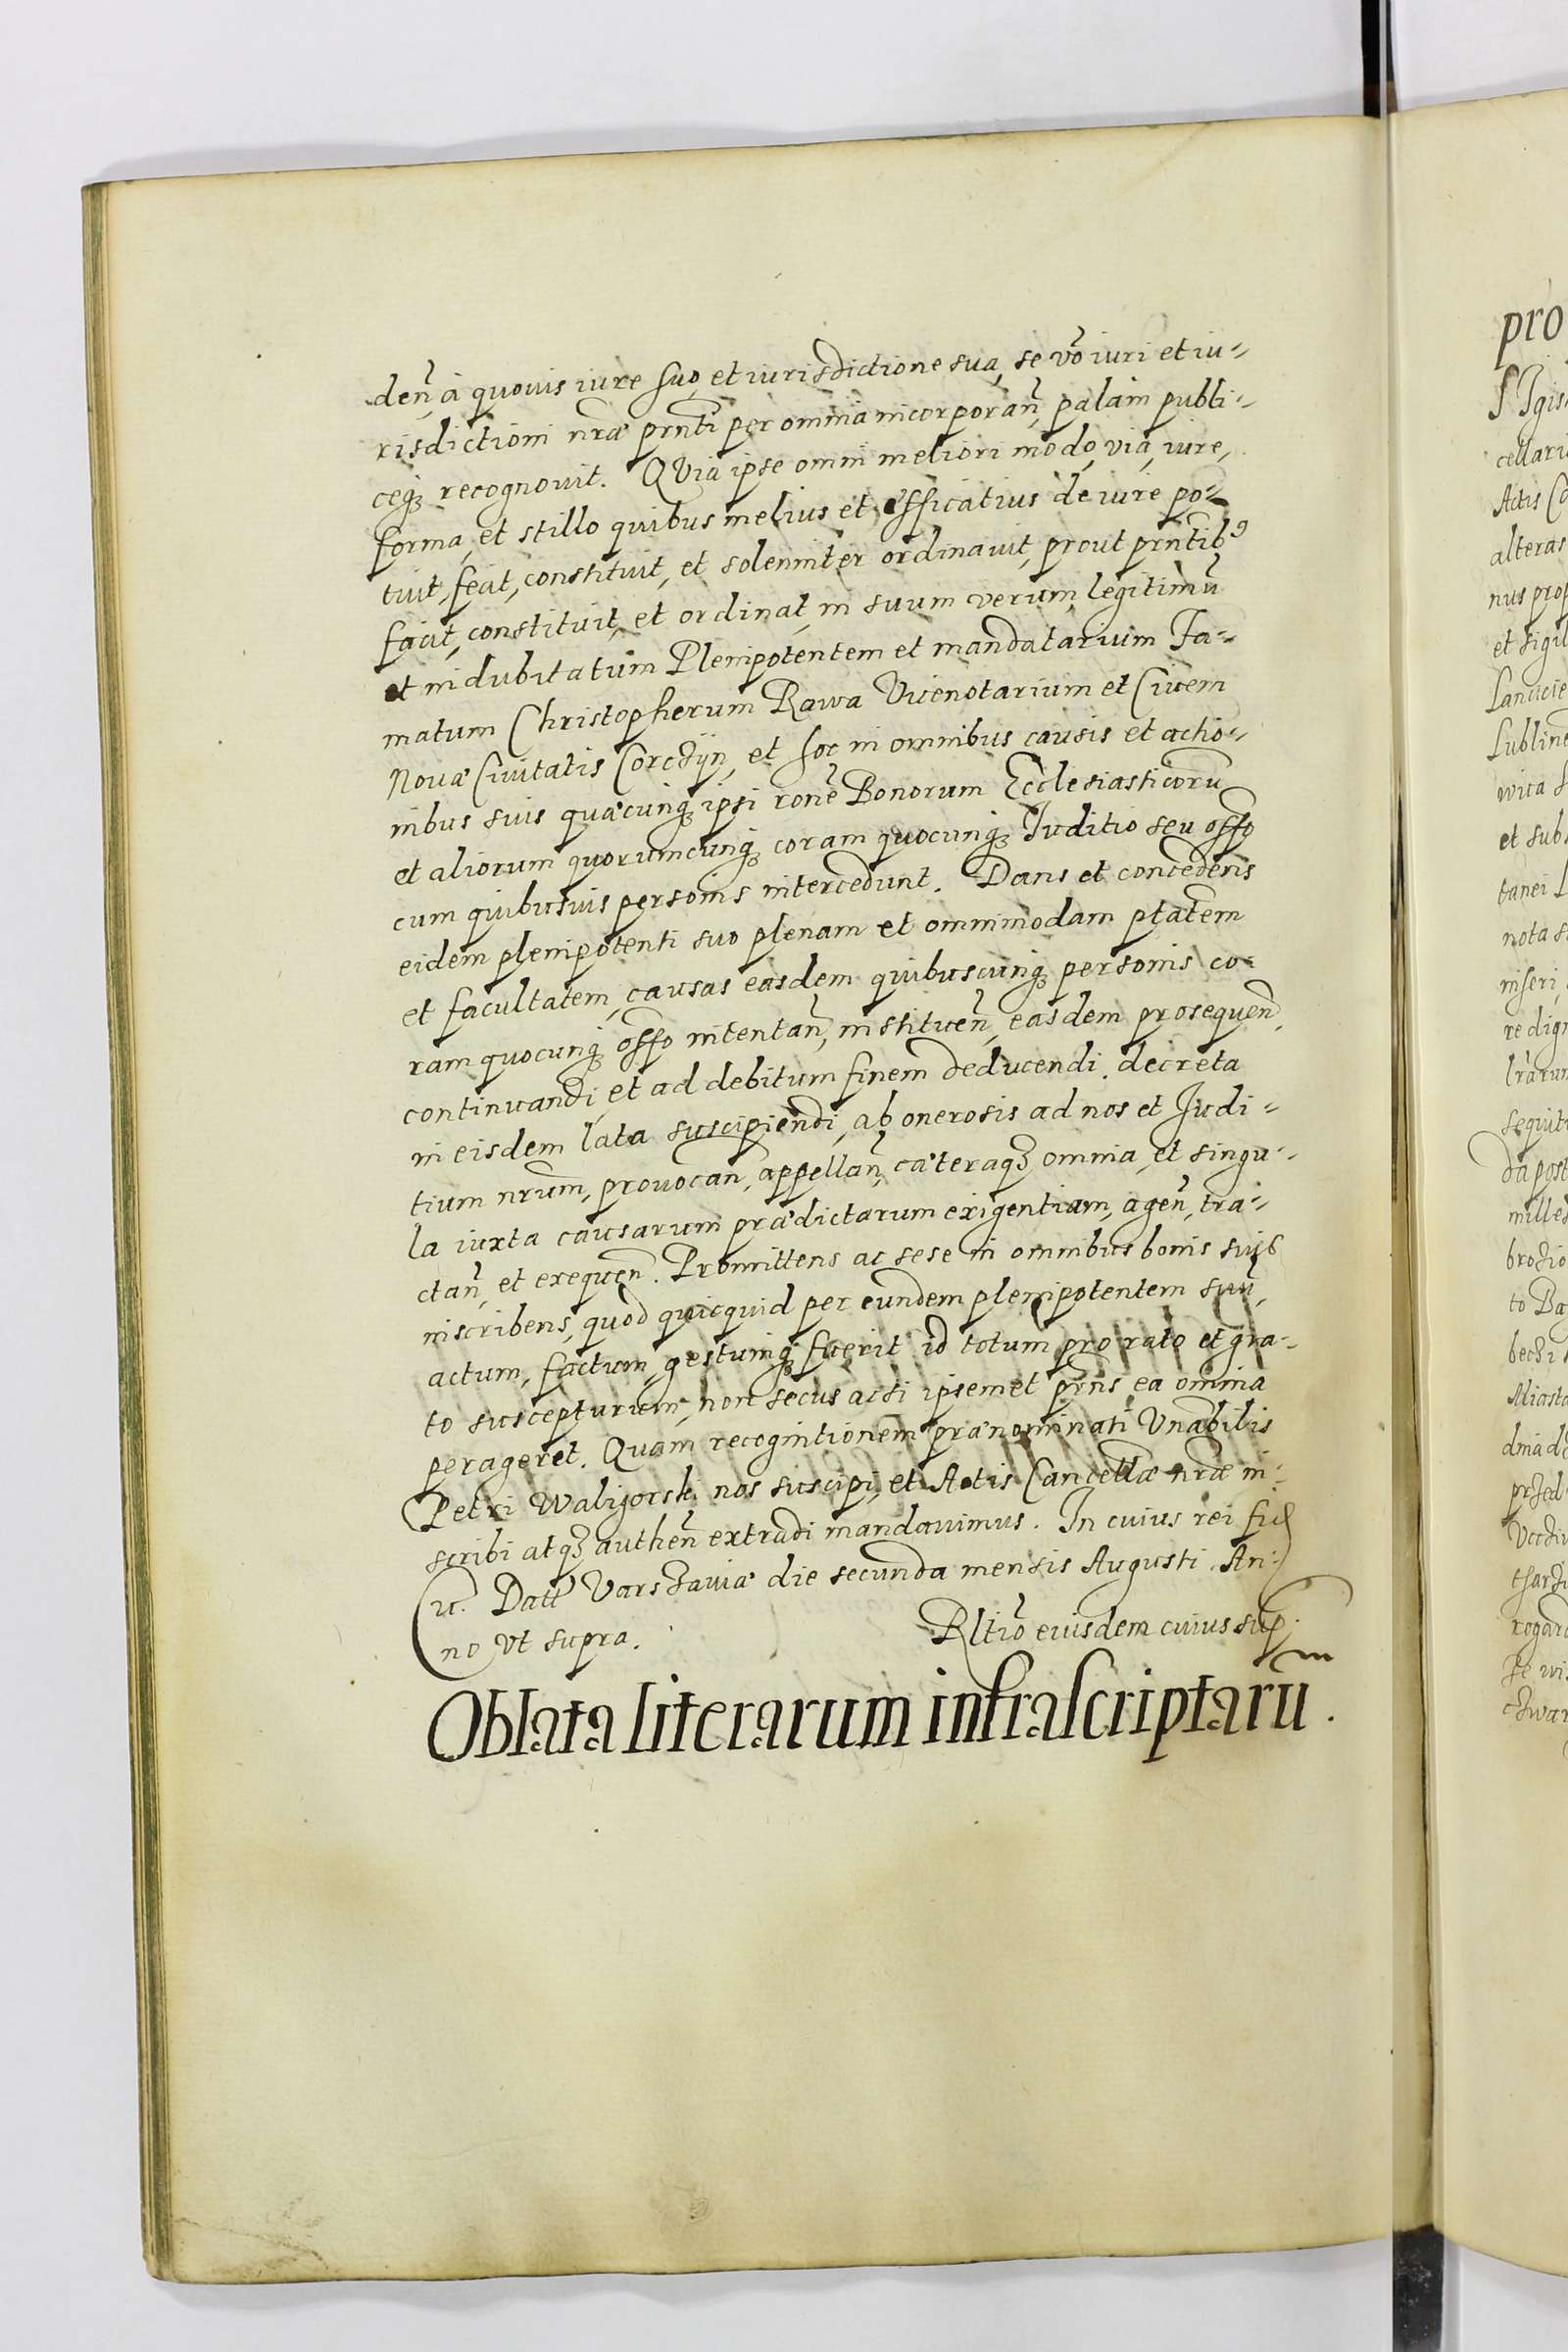 den̄ à quouis iure suo, et iurisdictione sua, se vō iuri et iu-
risdictioni nræ prnti per omnia incorporan̄, palàm publi-
ceq; recognouit. QVia ipse omni meliori modo, via, iure,
forma, et stillo quibus melius et efficatius de iure po-
tuit, fecit, constituit, et solenniter ordinauit, prout prntib9
facit, constituit, et ordinat, in suum verum, legitimū
et indubitatum Plenipotentem et mandatarium Fa-
matum Christopherum Rawa Vicenotarium et Ciuem
Nouæ Ciuitatis Corczÿn, et hoc in omnibus causis et actio-
nibus suis quæcunq; ipsi ronē Bonorum Ecclesiasticorū
et aliorum quorumcunq; coram quocunq; Iuditio seu offo
cum quibusuis personis intercedunt. Dans et concedens
eidem plenipotenti suo plenam et omnimodam ptatem
et facultatem, causas easdem quibuscunq; personis co-
ram quocunq; offo intentan̄, instituen̄, easdem prosequen̄,
continuandi, et ad debitum finem deducendi, decreta
in eisdem lata suscipiendi, ab onerosis ad nos et Judi-
tium nrum, prouocan̄, appellan̄, cæteraq; omnia, et singu-
la iuxta causarum prædictarum exigentiam, agen̄, tra-
ctan̄, et exequen̄. Promittens ac sese in omnibus bonis suis
inscribens, quod quicquid per eundem plenipotentem suū,
actum, factum, gestumq; fuerit id totum pro rato et gra-
to suscepturum, non secus acsi ipsemet prns ea omnia
perageret. Quam recognitionem prænominati Vnabilis
Petri Waligorski nos suscipi, et Actis Cancellæ nræ in-
scribi atq; authen̄ extradi mandauimus. In cuius rei fid
u. Datt Varszauiæ die secunda mensis Augusti An:
no vt supra. Rltiō eiusdem cuius sup:
Oblata literarum infrascriptarū.
pro
cellari
Actis Co
alteras
nus prop
et sigil
Lancicie
Lubline
wica
et sub
tanei L
nota s
inseri
re dign
lrarum
sequit
da post
milles
brozio
to Ba
beczi
Miasta
dnia d
przed
rogard
czwar